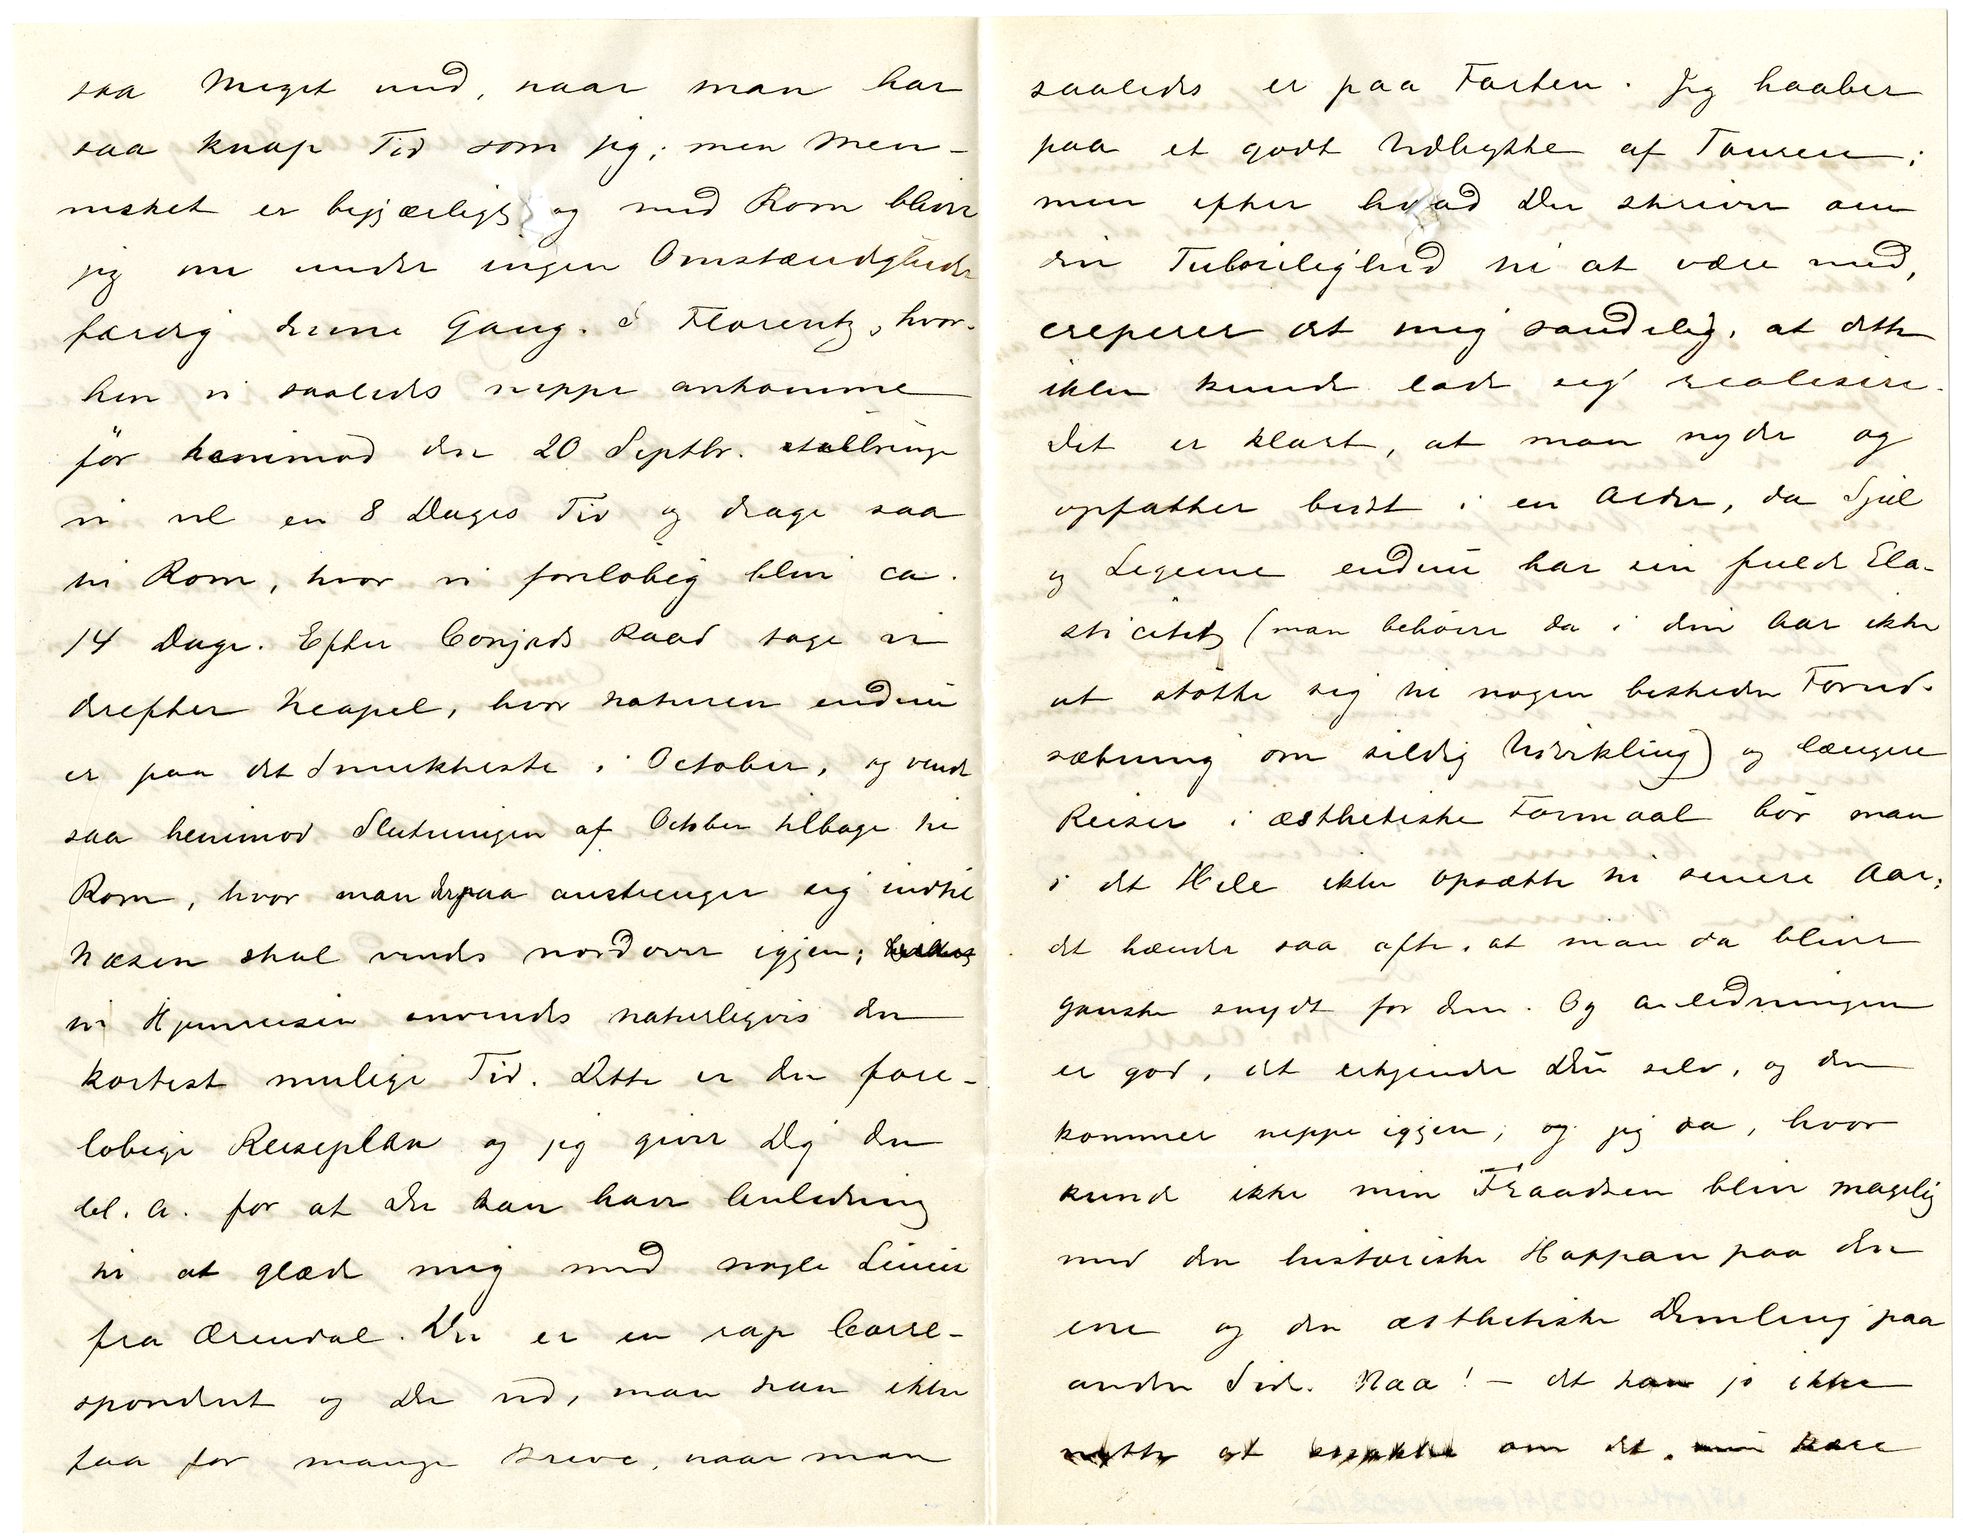 saa meget med, naar man har
saa knap Tid som jeg; men Men-
nesket er begjærligt, og med Rom bliver
jeg nu under ingen Omstændigheder
færdig denne Gang. I Florentz, hvor-
hen vi saaledes neppe ankomme
før henimod den 20 Septbr. tilbringe
vi vel en 8 Dages Tid og drage saa
til Rom, hvor vi foreløbig blive ca.
14 Dage. Efter Raad tage vi
derefter Neapel, hvor naturen endnu
er paa det Smukkeste i October, og vende
saa henimod Slutningen af October tilbage til
Rom, hvor man derpaa anstrenger sig indtil
Næsen skal vendes nordover igjen;
til Hjemreisen anvendes naturligvis den
kortest mulige Tid. Dette er den fore-
løbige Reiseplan og jeg giver Dig den
bl. A. for at Du kan have Anledning
til at glæde mig med nogle Linier
fra Arendal. Du er en rap Corre-
spondent og Du ved, man kan ikke
faa for mange Breve, naar man
saaledes er paa Farten. Jeg haaber
paa et godt Udbytte af Touren;
men efter hvad Du skriver om
din Tilbøielighed til at være med,
creperer det mig sandelig, at dette
ikke kunde lade sig realisere.
Det er klart, at man nyder og
opfatter bedst i en Alder, da Sjæl
og Legeme endnu har sin fulde Ela-
sticitet (man behøver da i din Aar ikke
at støtte sig til nogen beskeden Forud-
sætning om sildig Udvikling) og længere
Reiser i æsthetiske Formaal bør man
i det Hele ikke opsætte til senere Aar;
det hænder saa ofte, at man da bliver
ganske snydt for dem. Og Anledningen
er god, det erkjender Du selv, og den
kommer neppe igjen; og jeg da, hvor
kunde ikke min Fraadsen blive magelig
med den historiske Hoppan paa den
ene og den æsthetiske Dimling paa
anden Side. Naa! – det kan jo ikke
nytte at snakke om det, min kære